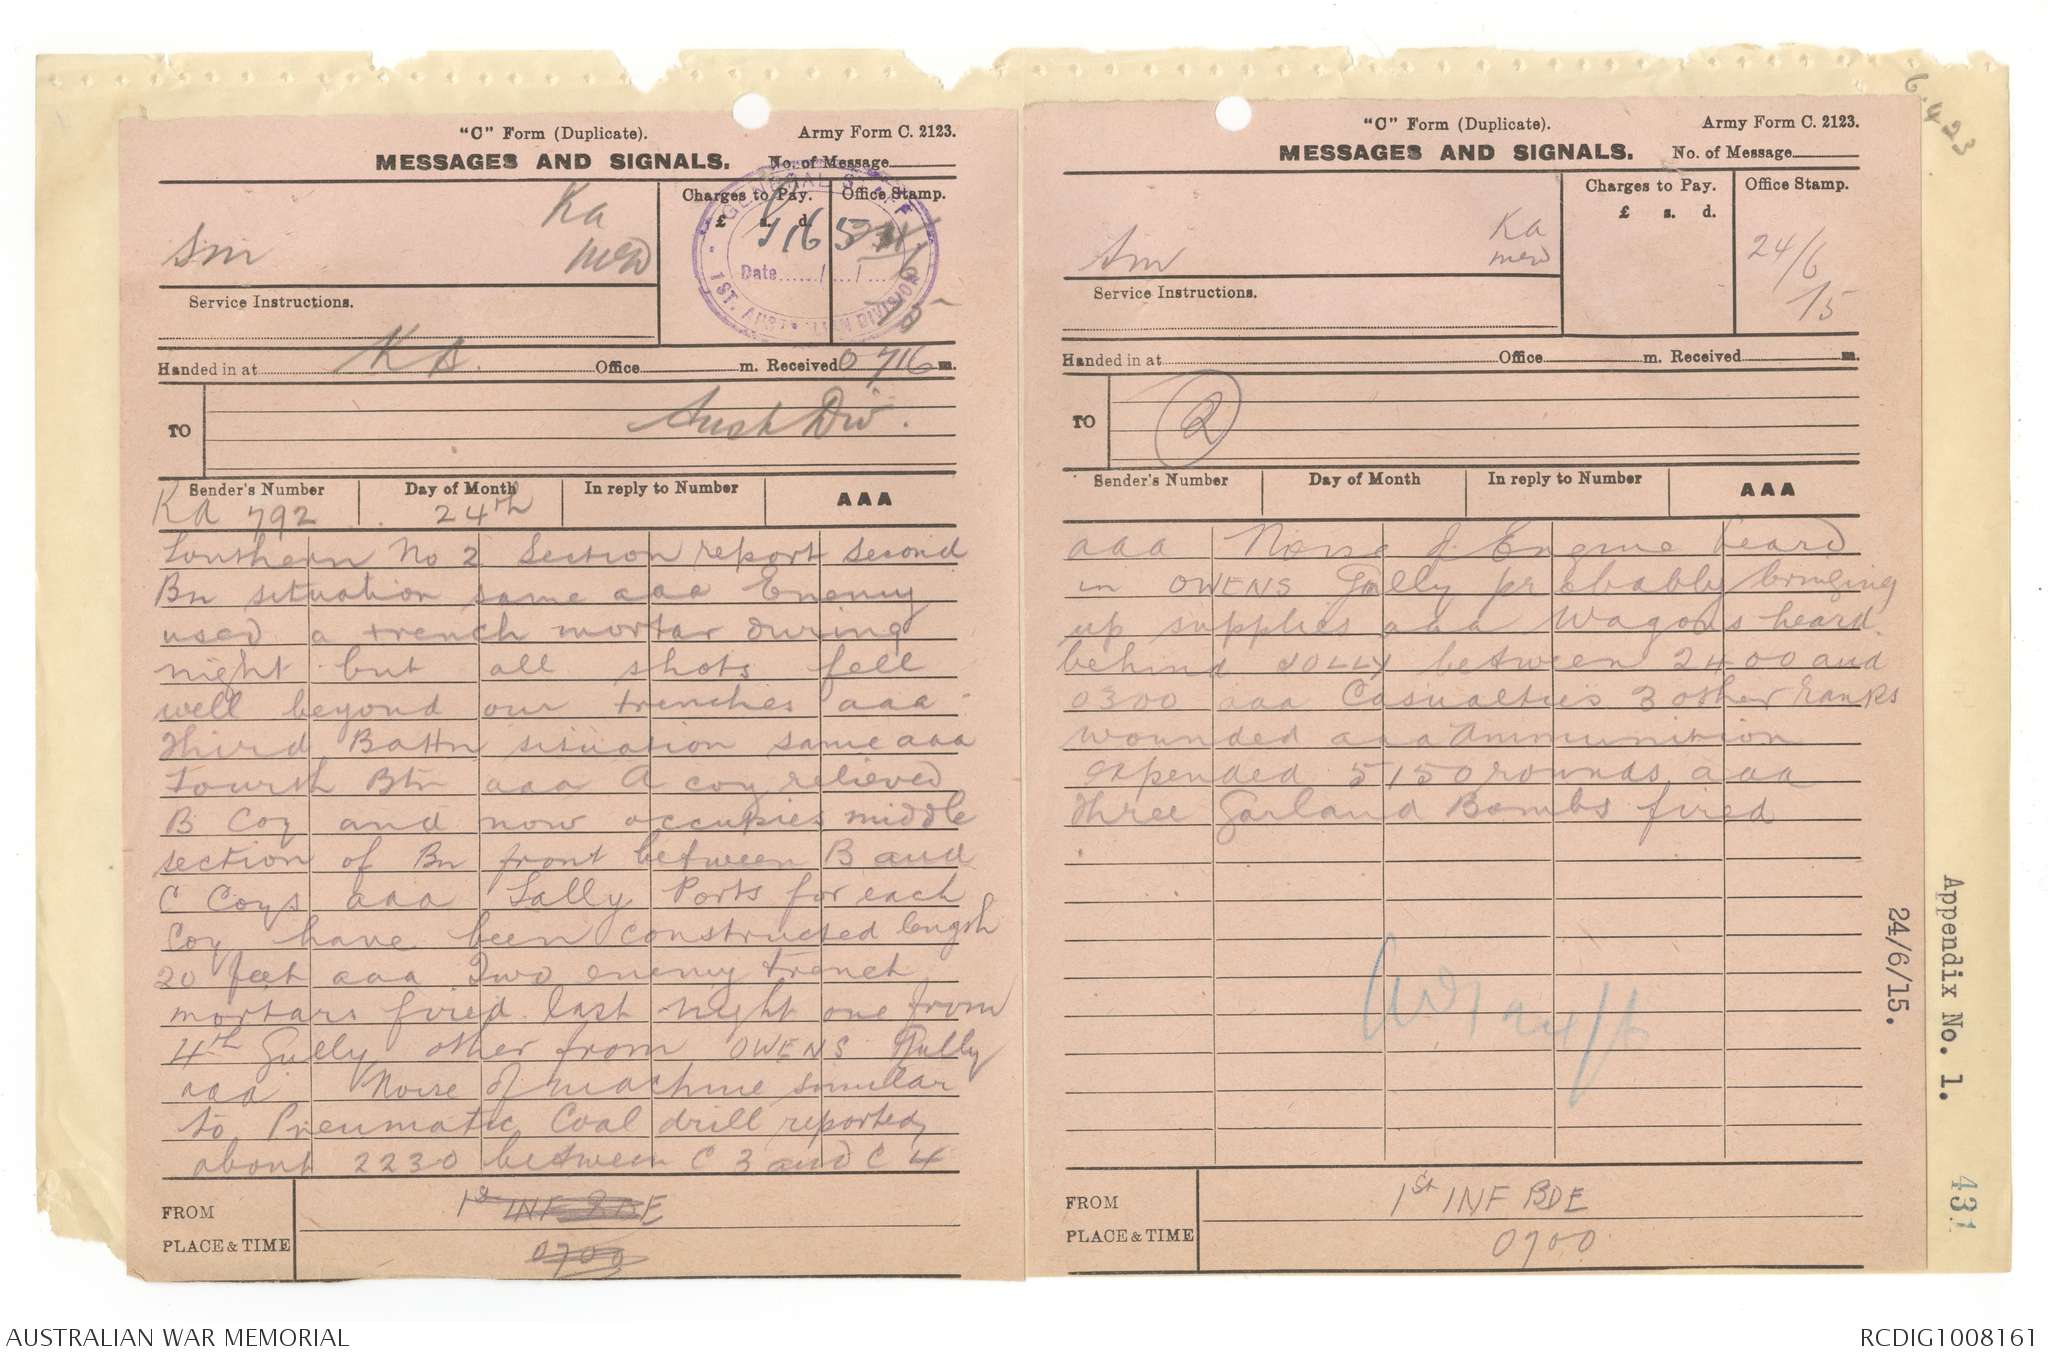 "C" Form (Duplicate). Army Form C. 2123.
MESSAGES AND SIGNALS. No. of Message
Charges to Pay. Office Stamp.
£ s. d.
Sm Ka
GENERAL STAFF
Date
1ST. AUSTRALIAN DIVISION
Service Instructions.
Handed in at KA. Office m. Received 0716 m.
TO Aust Div.
Sender's Number Day of Month In reply to Number AAA
KA 792 24th
Southern No 2 Section report second
Bn situation same aaa Enemy
used a trench mortar during
night but all shots fell
well beyond our trenches aaa
Third Battn situation same aaa
Fourth Btn aaa A coy relieved
B Coy and now occupies middle
section of Bn front between B and
C Coys aaa Sally Ports for each
Coy have been constructed length
20 feet aaa Two enemy trench
mortars fired last night one from
4th Gully other from OWENS Gully
aaa Noise of machine similar
to Pneumatic Coal drill reported
about 2230 between C 3 and C 4
FROM 1st INF BDE
PLACE & TIME 0700
"C" Form (Duplicate). Army Form C. 2123.
MESSAGES AND SIGNALS. No. of Message
Charges to Pay. Office Stamp.
£ s. d.
Sm Ka
24/6
15
Service Instructions.
Handed in at Office m. Received m.
TO 2
Sender's Number Day of Month In reply to Number AAA
aaa Noise of Engine heard
in OWENS Gully probably bringing
up supplies aaa Wagons heard
behind JOLLY between 2400 and
0300 aaa Casualties 3 other ranks
wounded aaa Ammunition
expended 5150 rounds aaa
three Garland Bombs fired
FROM 1st INF BDE
PLACE & TIME 0700
24/6/15.
Appendix No. 1.
431
AUSTRALIAN WAR MEMORIAL RCDIG1008161